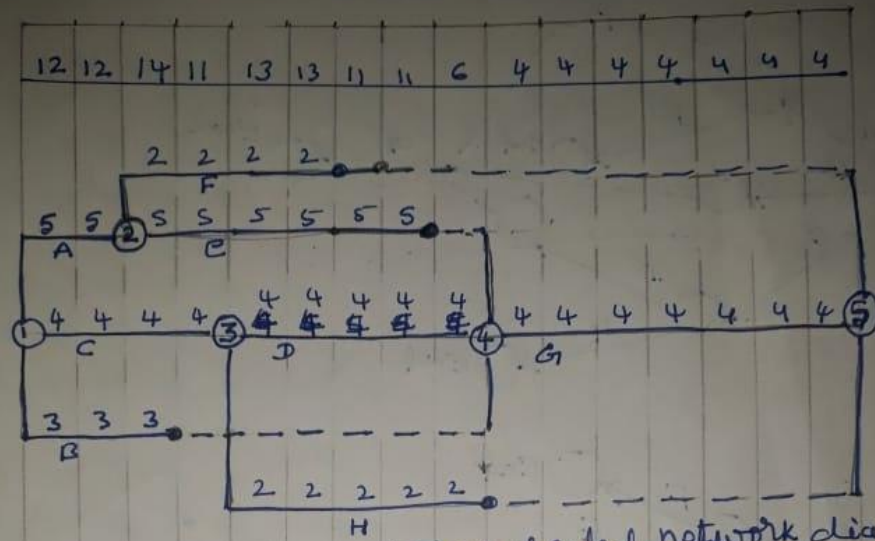 12 12 14 11 13 13 11 11 6 4 4 4 4 4 4 4
2 2 2 2
F
5 5 2 5 5 5 5 5 5
A E
4 4 4 4 4
1 4 4 4 4 3 4 4 4 4 4 4 4 5
C D G
3 3 3
B
2 2 2 2 2
H
network dia